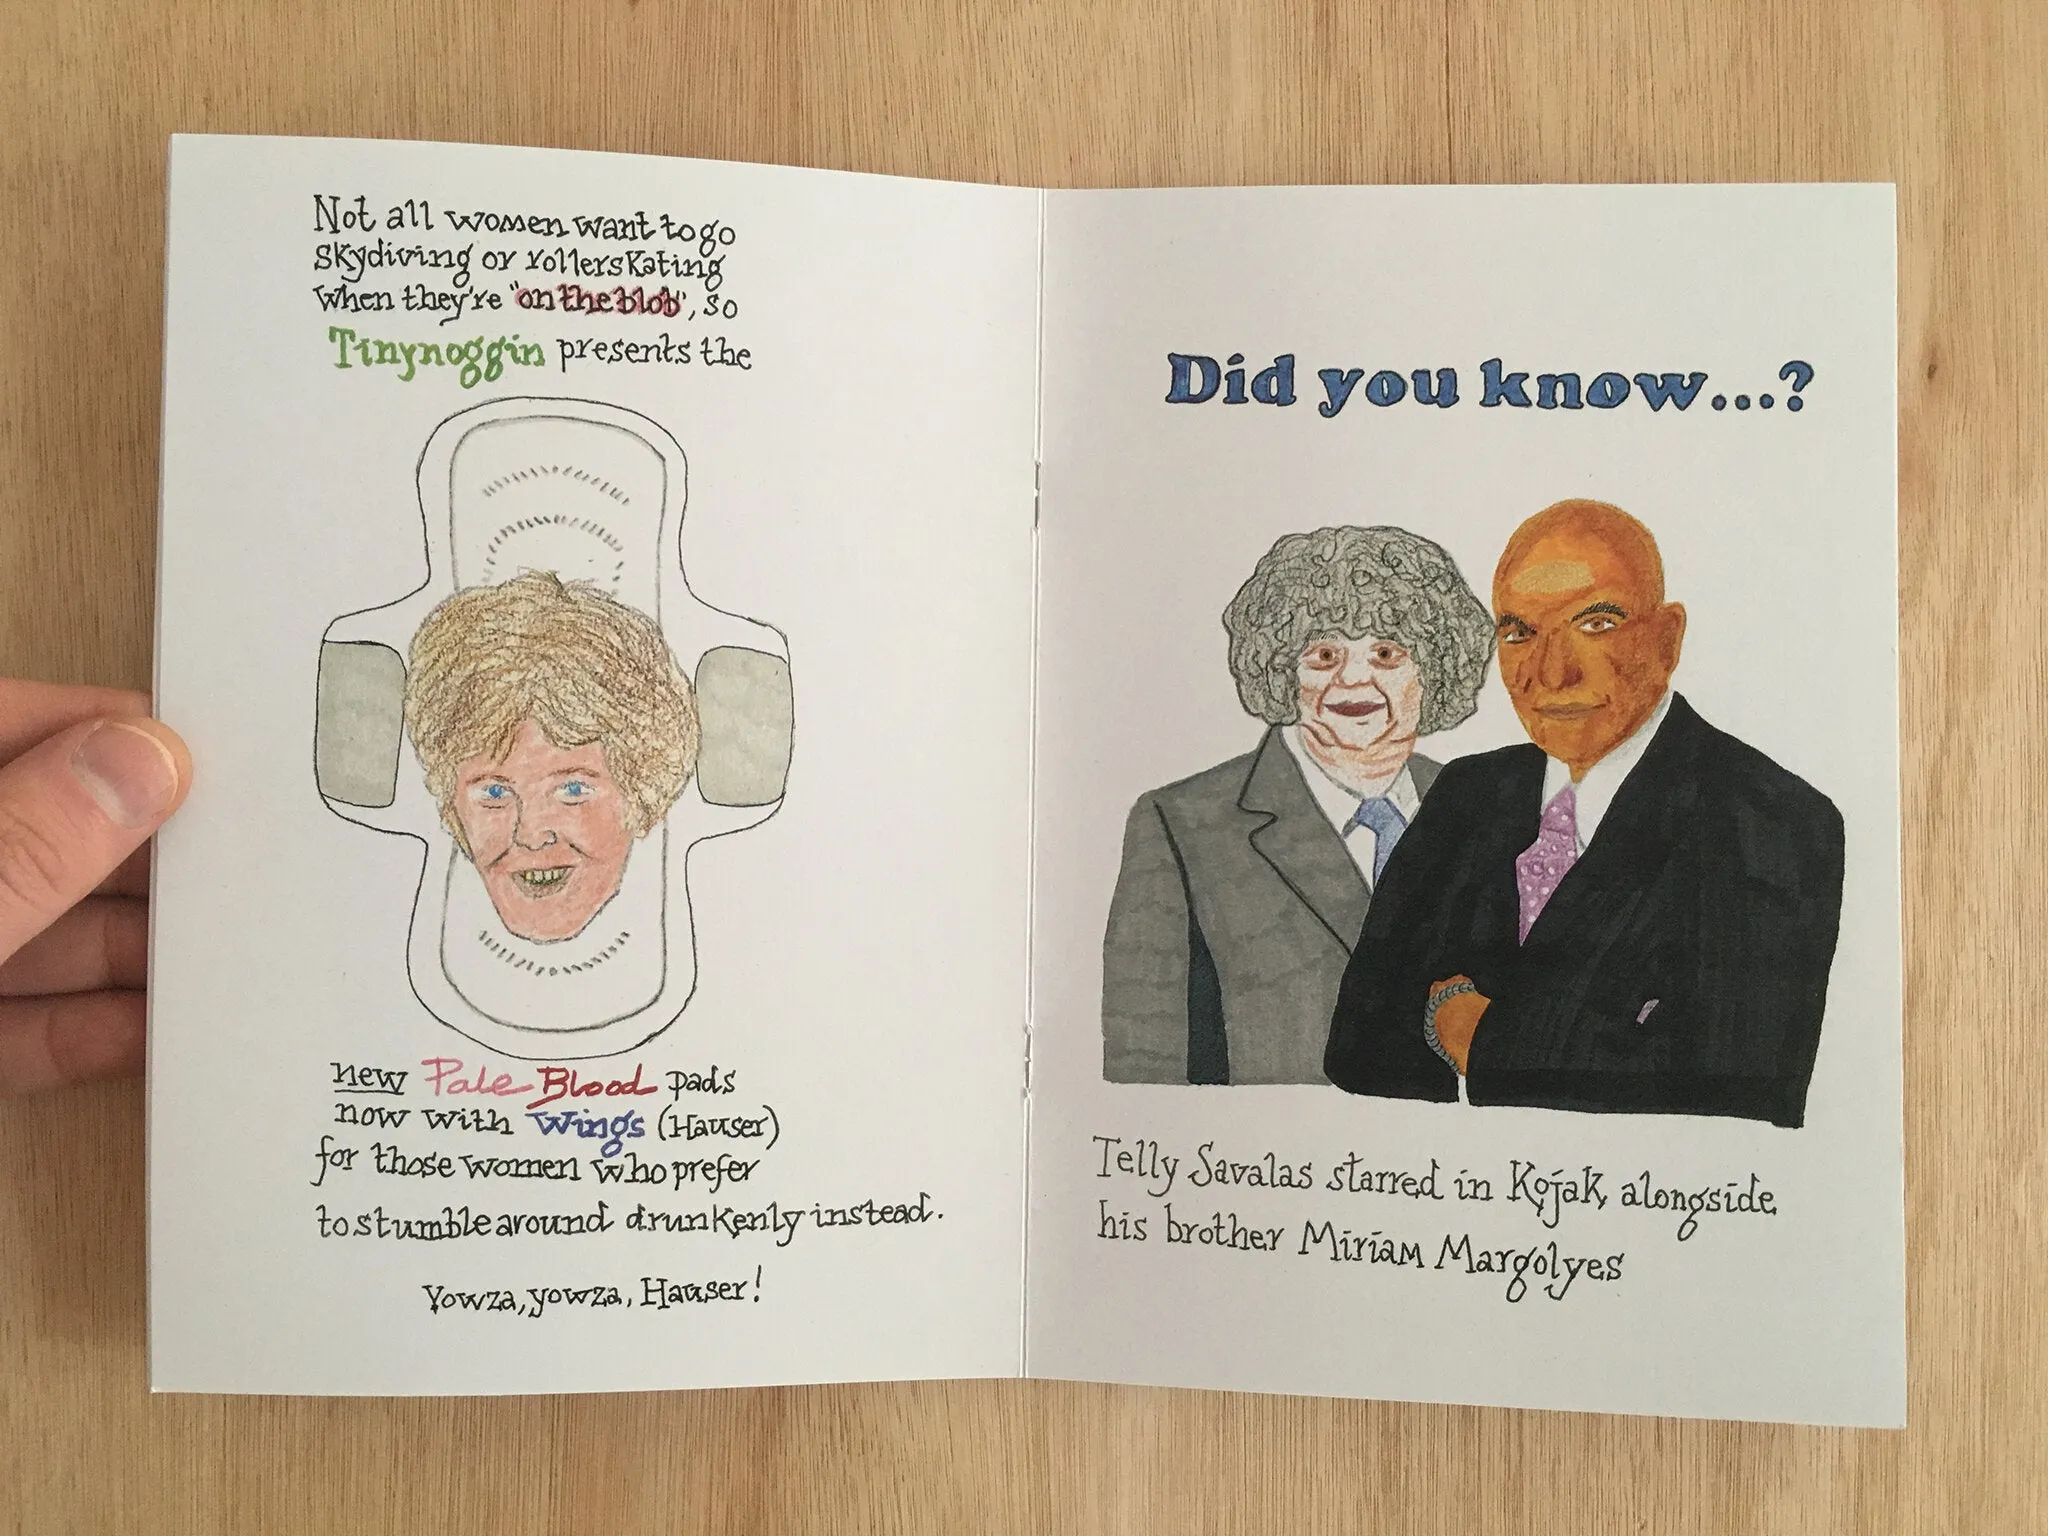 Not all women want to go
skydiving or rollerskating
when they're "on the blob", so
Tinynoggin presents the
new Pale Blood pads
now with Wings (Hauser)
for those women who prefer
to stumble around drunkenly instead.
Yowza, yowza, Hauser!
Did you know...?
Telly Savalas starred in Kojak, alongside
his brother Miriam Margolyes